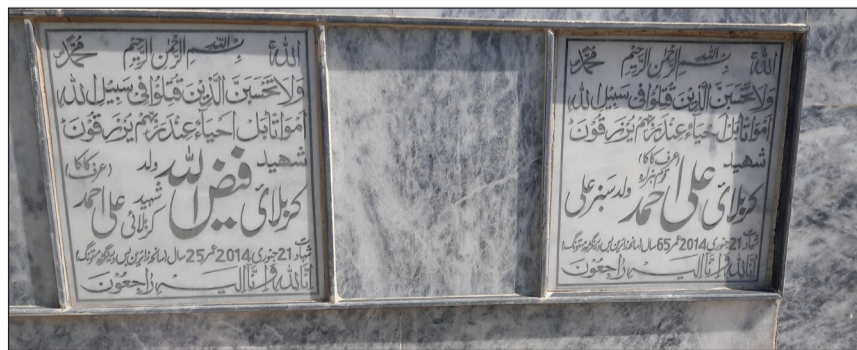 اللہ بسم اللہ الرحمن الرحیم محمد
ولا تحسبن الذین قتلوا فی سبیل اللہ
امواتا بل احیاء عند ربهم یرزقون
شهید
(عرف کاکا)
قوم ہزارہ
کربلائی علی احمد ولد سبز علی
شہادت 21 جنوری 2014 عمر 65 سال (سانحہ زائرین بس درینگڑھ مستونگ)
انا للہ و انا الیہ راجعون
اللہ بسم اللہ الرحمن الرحیم محمد
ولا تحسبن الذین قتلوا فی سبیل اللہ
امواتا بل احیاء عند ربهم یرزقون
شهید
کربلائی فیض اللہ ولد (عرف کاکا)
شهید
کربلائی علی احمد
شہادت 21 جنوری 2014 عمر 25 سال (سانحہ زائرین بس درینگڑھ مستونگ)
انا للہ و انا الیہ راجعون